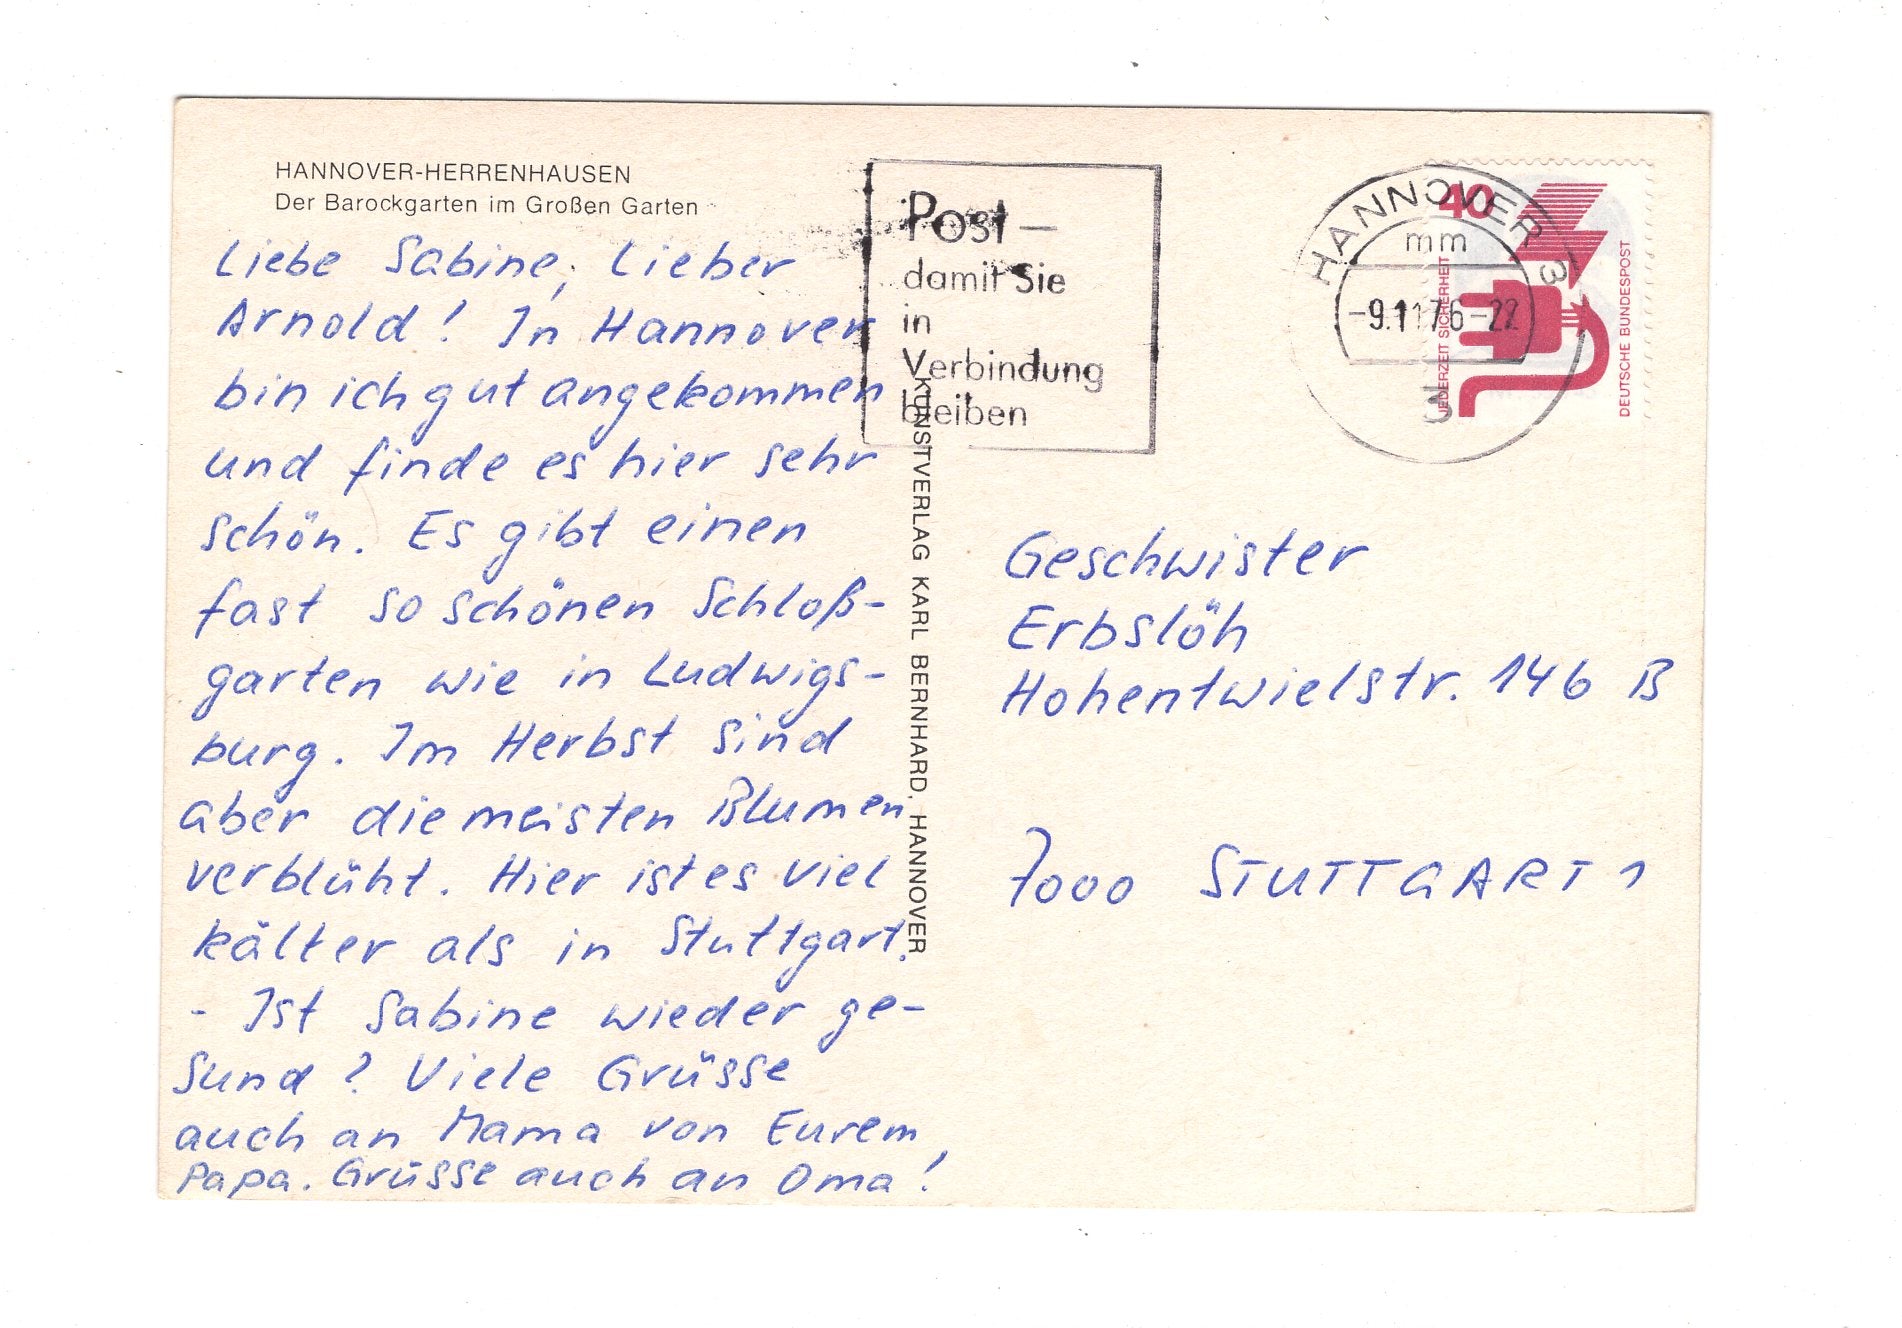 HANNOVER-HERRENHAUSEN
Der Barockgarten im Großen Garten
Liebe Sabine, Lieber
Arnold! In Hannover
bin ich gut angekommen
und finde es hier sehr
schön. Es gibt einen
fast so schönen Schloß-
garten wie in Ludwigs-
burg. Im Herbst sind
aber die meisten Blumen
verblüht. Hier ist es viel
kälter als in Stuttgart.
- Ist Sabine wieder ge-
sund? Viele Grüsse
auch an Mama von Eurem
Papa. Grüsse auch an Oma!
KUNSTVERLAG KARL BERNHARD, HANNOVER
Post –
damit Sie
in
Verbindung
bleiben
HANNOVER 3
mm
-9.11.76-22
3
40
JEDERZEIT SICHERHEIT
DEUTSCHE BUNDESPOST
Geschwister
Erbslöh
Hohentwielstr. 146 B
7000 STUTTGART 1